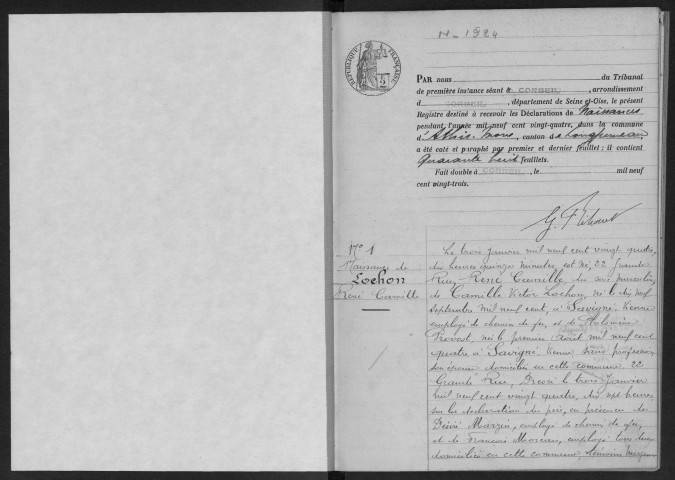 N - 1924
RÉPUBLIQUE FRANÇAISE
PAR nous du Tribunal
de première instance séant à CORBEIL, arrondissement
d CORBEIL, département de Seine-et-Oise, le présent
Registre destiné à recevoir les Déclarations de Naissances
pendant l'année mil neuf cent vingt-quatre, dans la commune
d'Athis-Mons, canton de Longjumeau
a été coté et paraphé par premier et dernier feuillet; il contient
Quarante huit feuillets.
Fait double à CORBEIL, le mil neuf
cent vingt-trois.
No 1
Naissance de
Lochon
René Camille
Le trois Janvier mil neuf cent vingt quatre,
dix heures quinze minutes, est né, 22 Grande
Rue, René Camille du sexe masculin,
de Camille Victor Lochon, né le dix neuf
septembre mil neuf cent, à Savigné, Vienne
employé de chemin de fer, et de
Provost, née le premier août mil neuf cent
quatre à Savigné Vienne sans profession
son épouse domiciliés en cette commune 22
Grande Rue, Dressé le trois Janvier
mil neuf cent vingt quatre, dix sept heures
sur la déclaration du père, en présence de
Désiré Marzin, employé de chemin de fer,
et de François Morceau, employé tous deux
domiciliés en cette commune, témoins